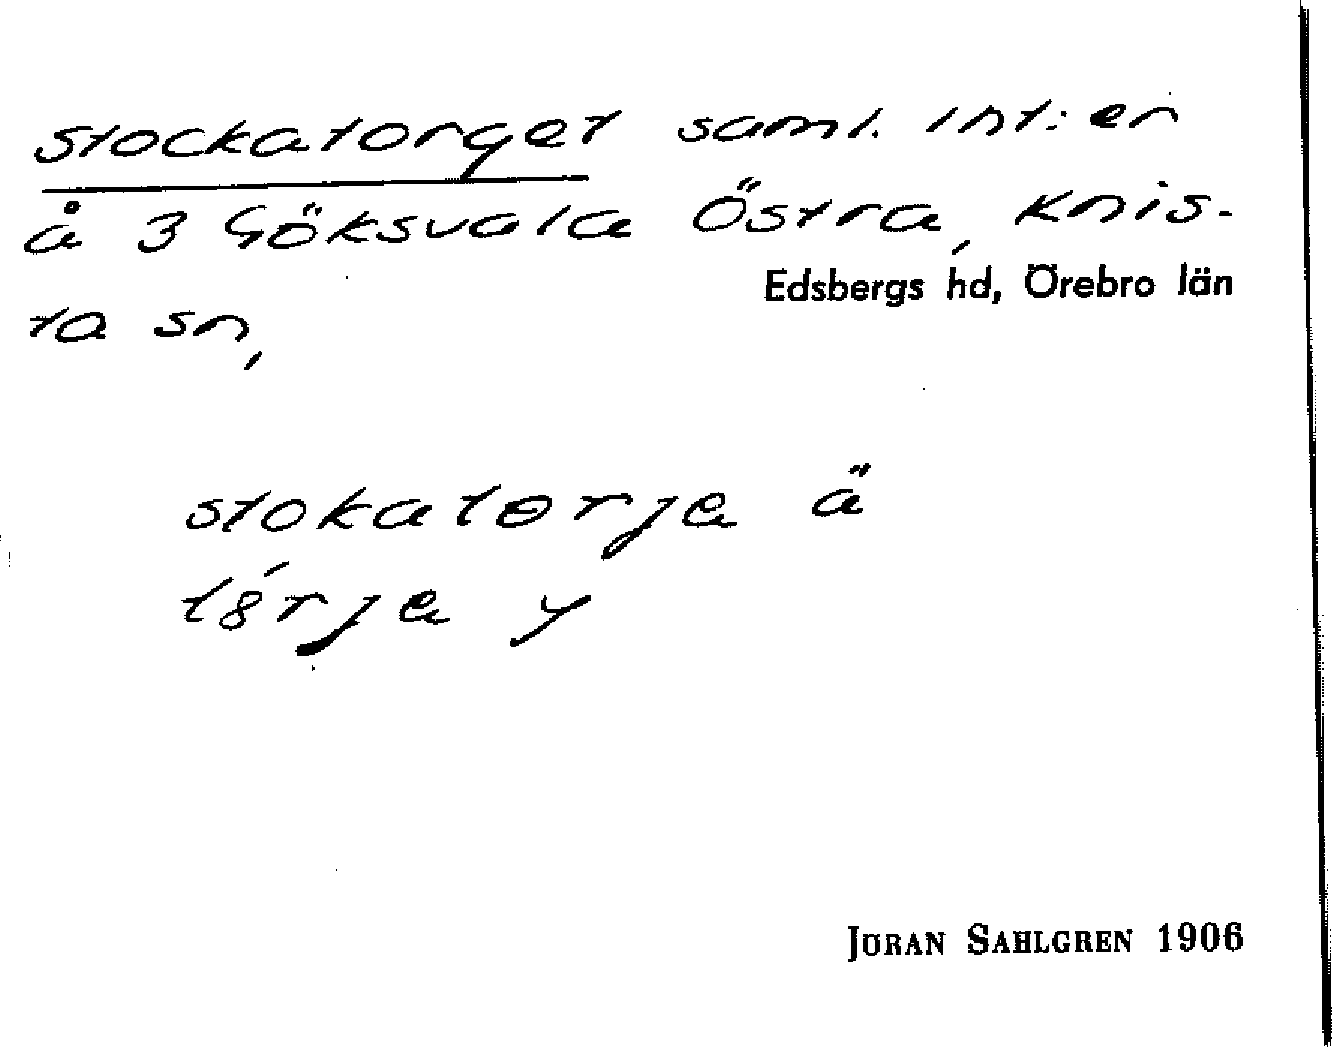 stockatorget saml. int:er
å 3 Göksvala Östra, Knis-
Edsbergs hd, Örebro län
ta sn,
stokatørje ä
y
JÖRAN SAHLGREN 1906